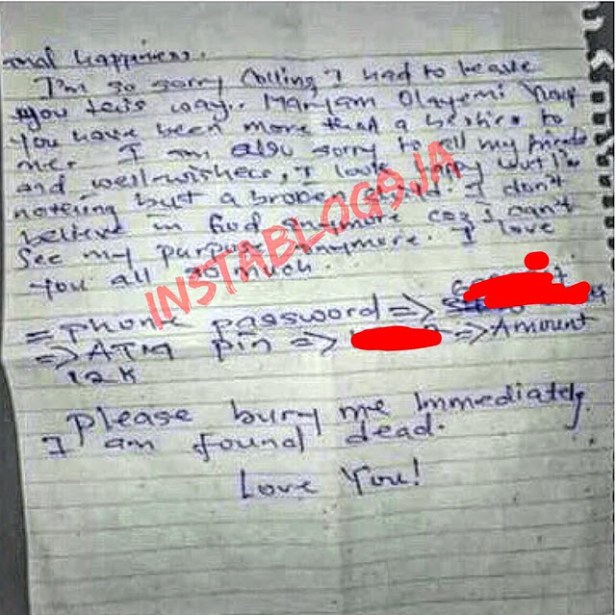 onal happiness.
I'm so sorry Colling, I had to leave
you this way.. Maryam Olayemi
You have been more than a bestie to
me. I am also sorry to all my friends
and well-wishers, I look happy but I'm
nothing but a broken I don't
believe in God anymore coz I can't
See my purpose anymore. I love
you all so much.
INSTABLOG9JA
=> phone password =>
=> ATM pin => => Amount
12K
Please bury me immediately
I am found dead.
Love You!